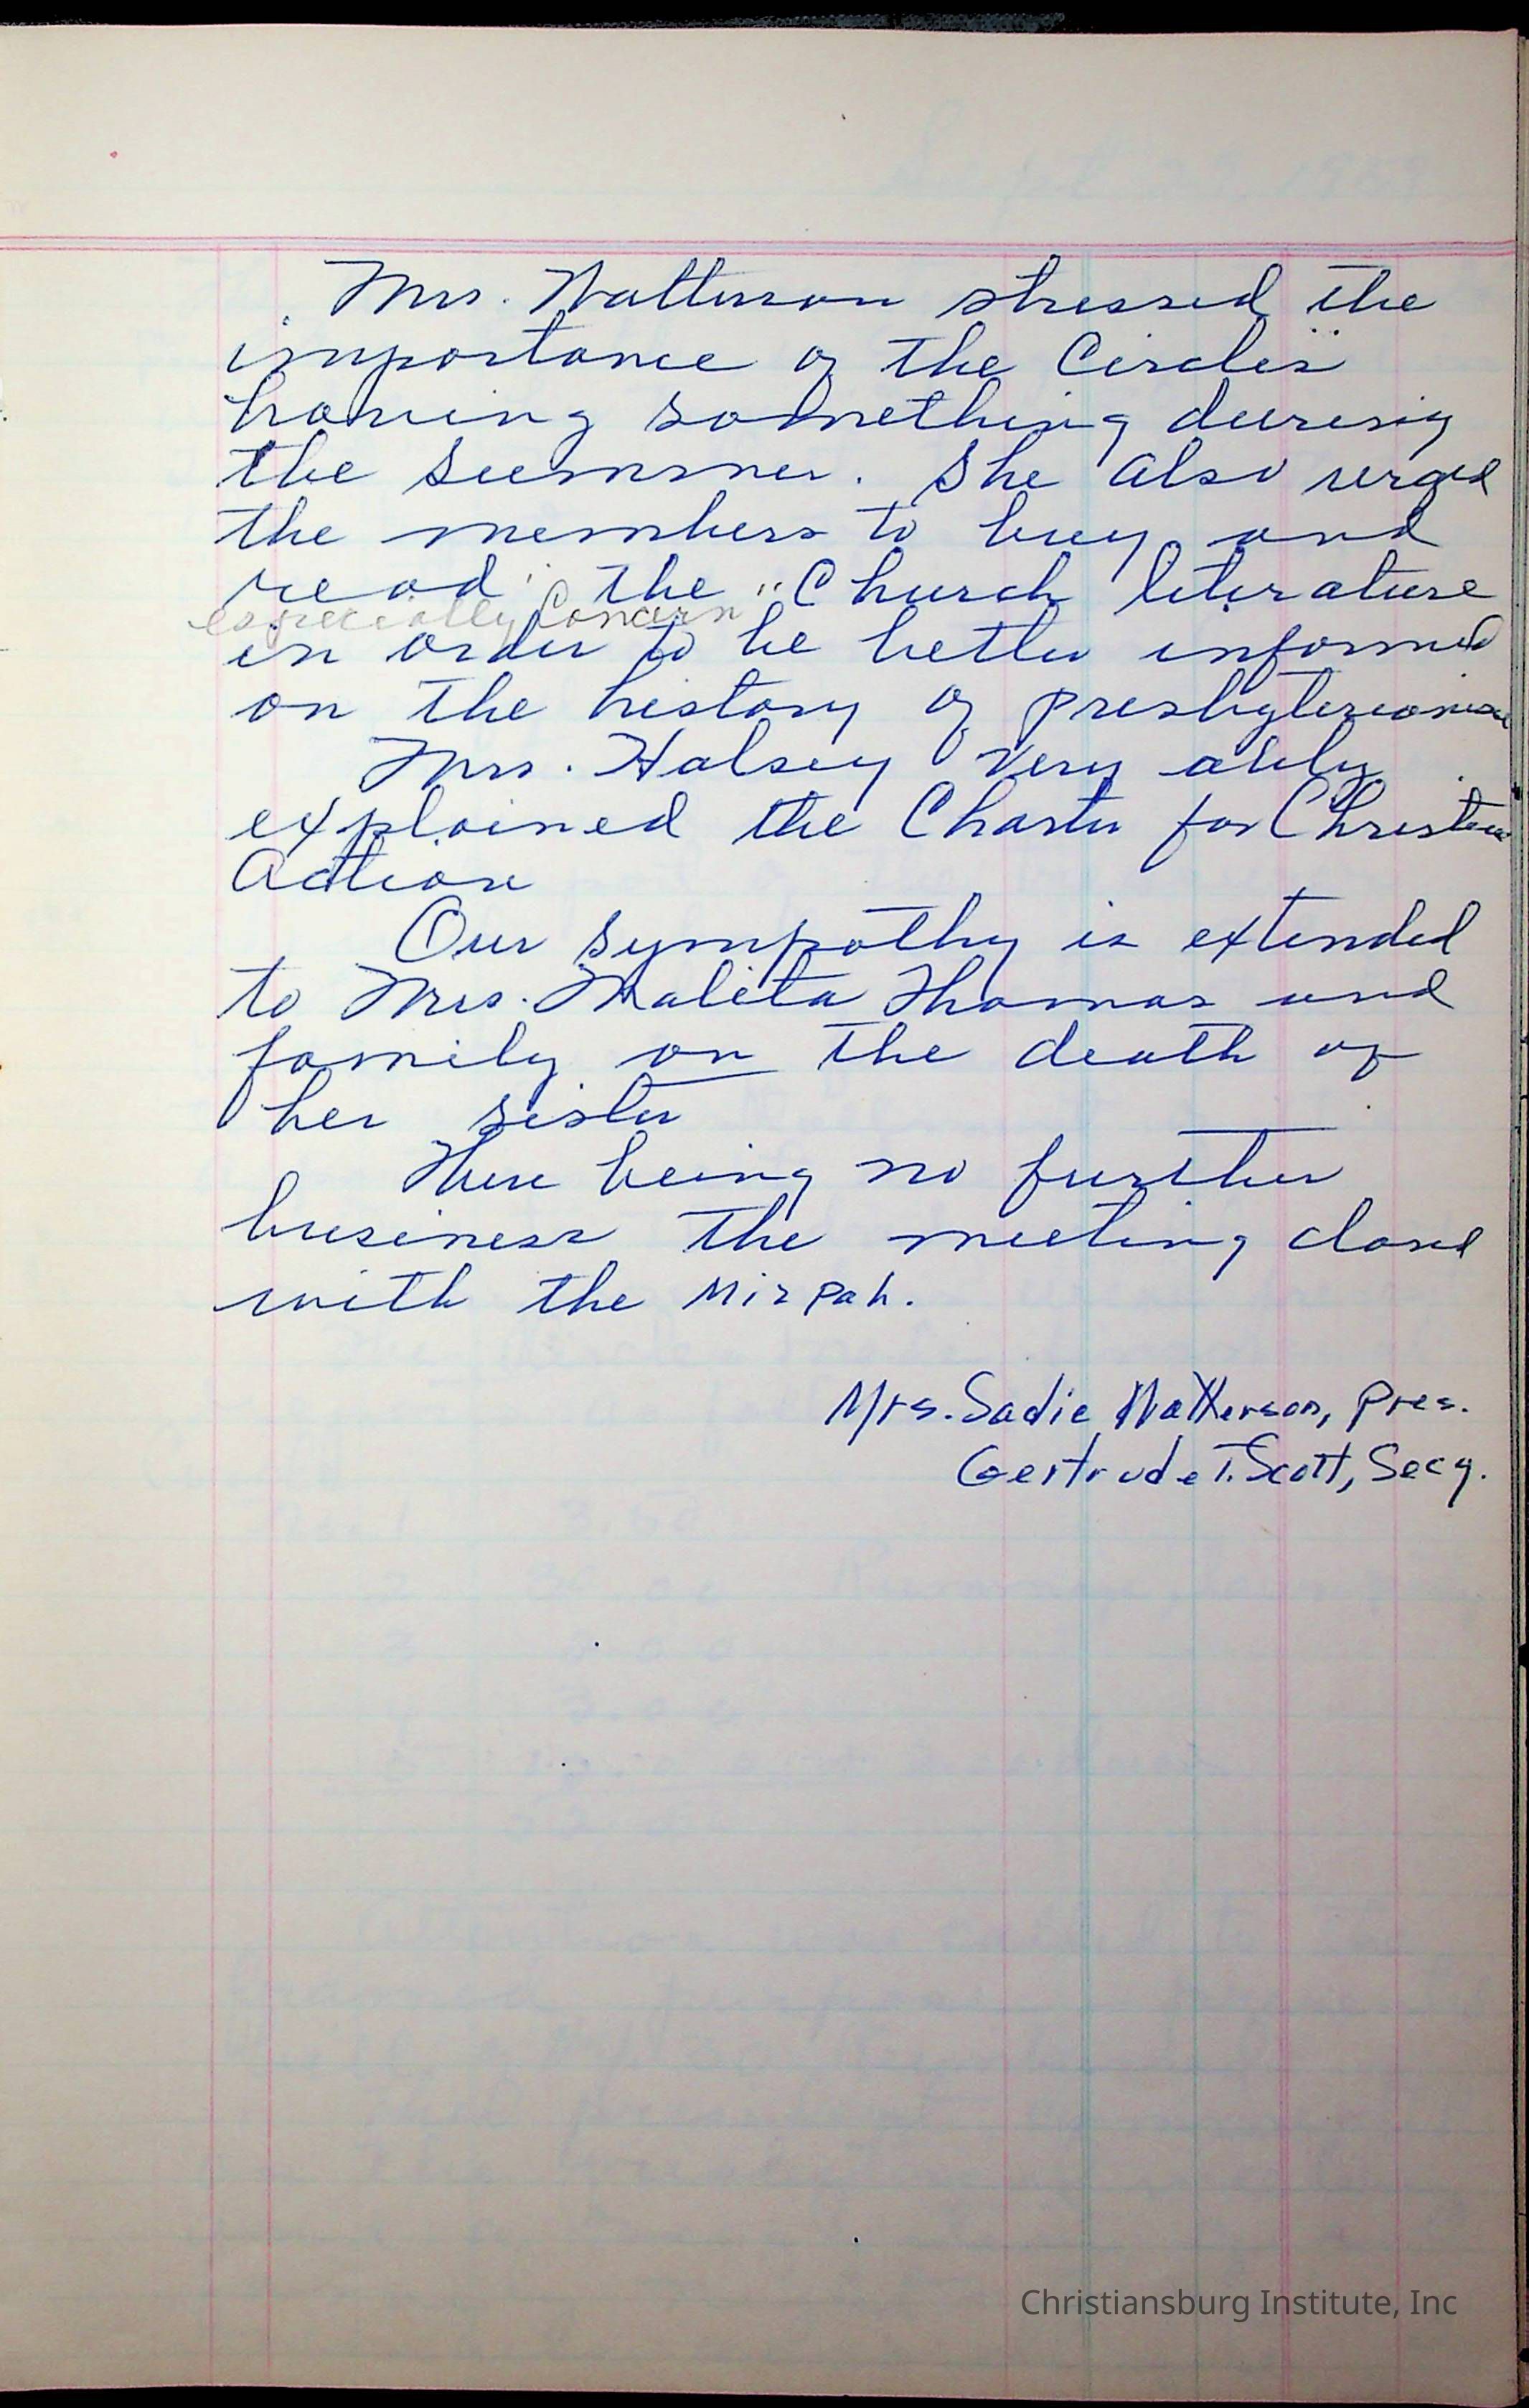 Mrs. Watterson stressed the
importance of the Circles
having something during
the summer. She also urged
the members to buy and
read the "Church literature
especially Concern
in order to be better informed
on the history of presbyterianism
Mrs. Halsey very ably
explained the Charter for Christian
Action
Our sympathy is extended
to Mrs. Malita Thomas and
family on the death of
her sister
There being no further
business the meeting closed
with the Mizpah.
Mrs. Sadie Watterson, Pres.
Gertrude T. Scott, Secy.
Christiansburg Institute, Inc